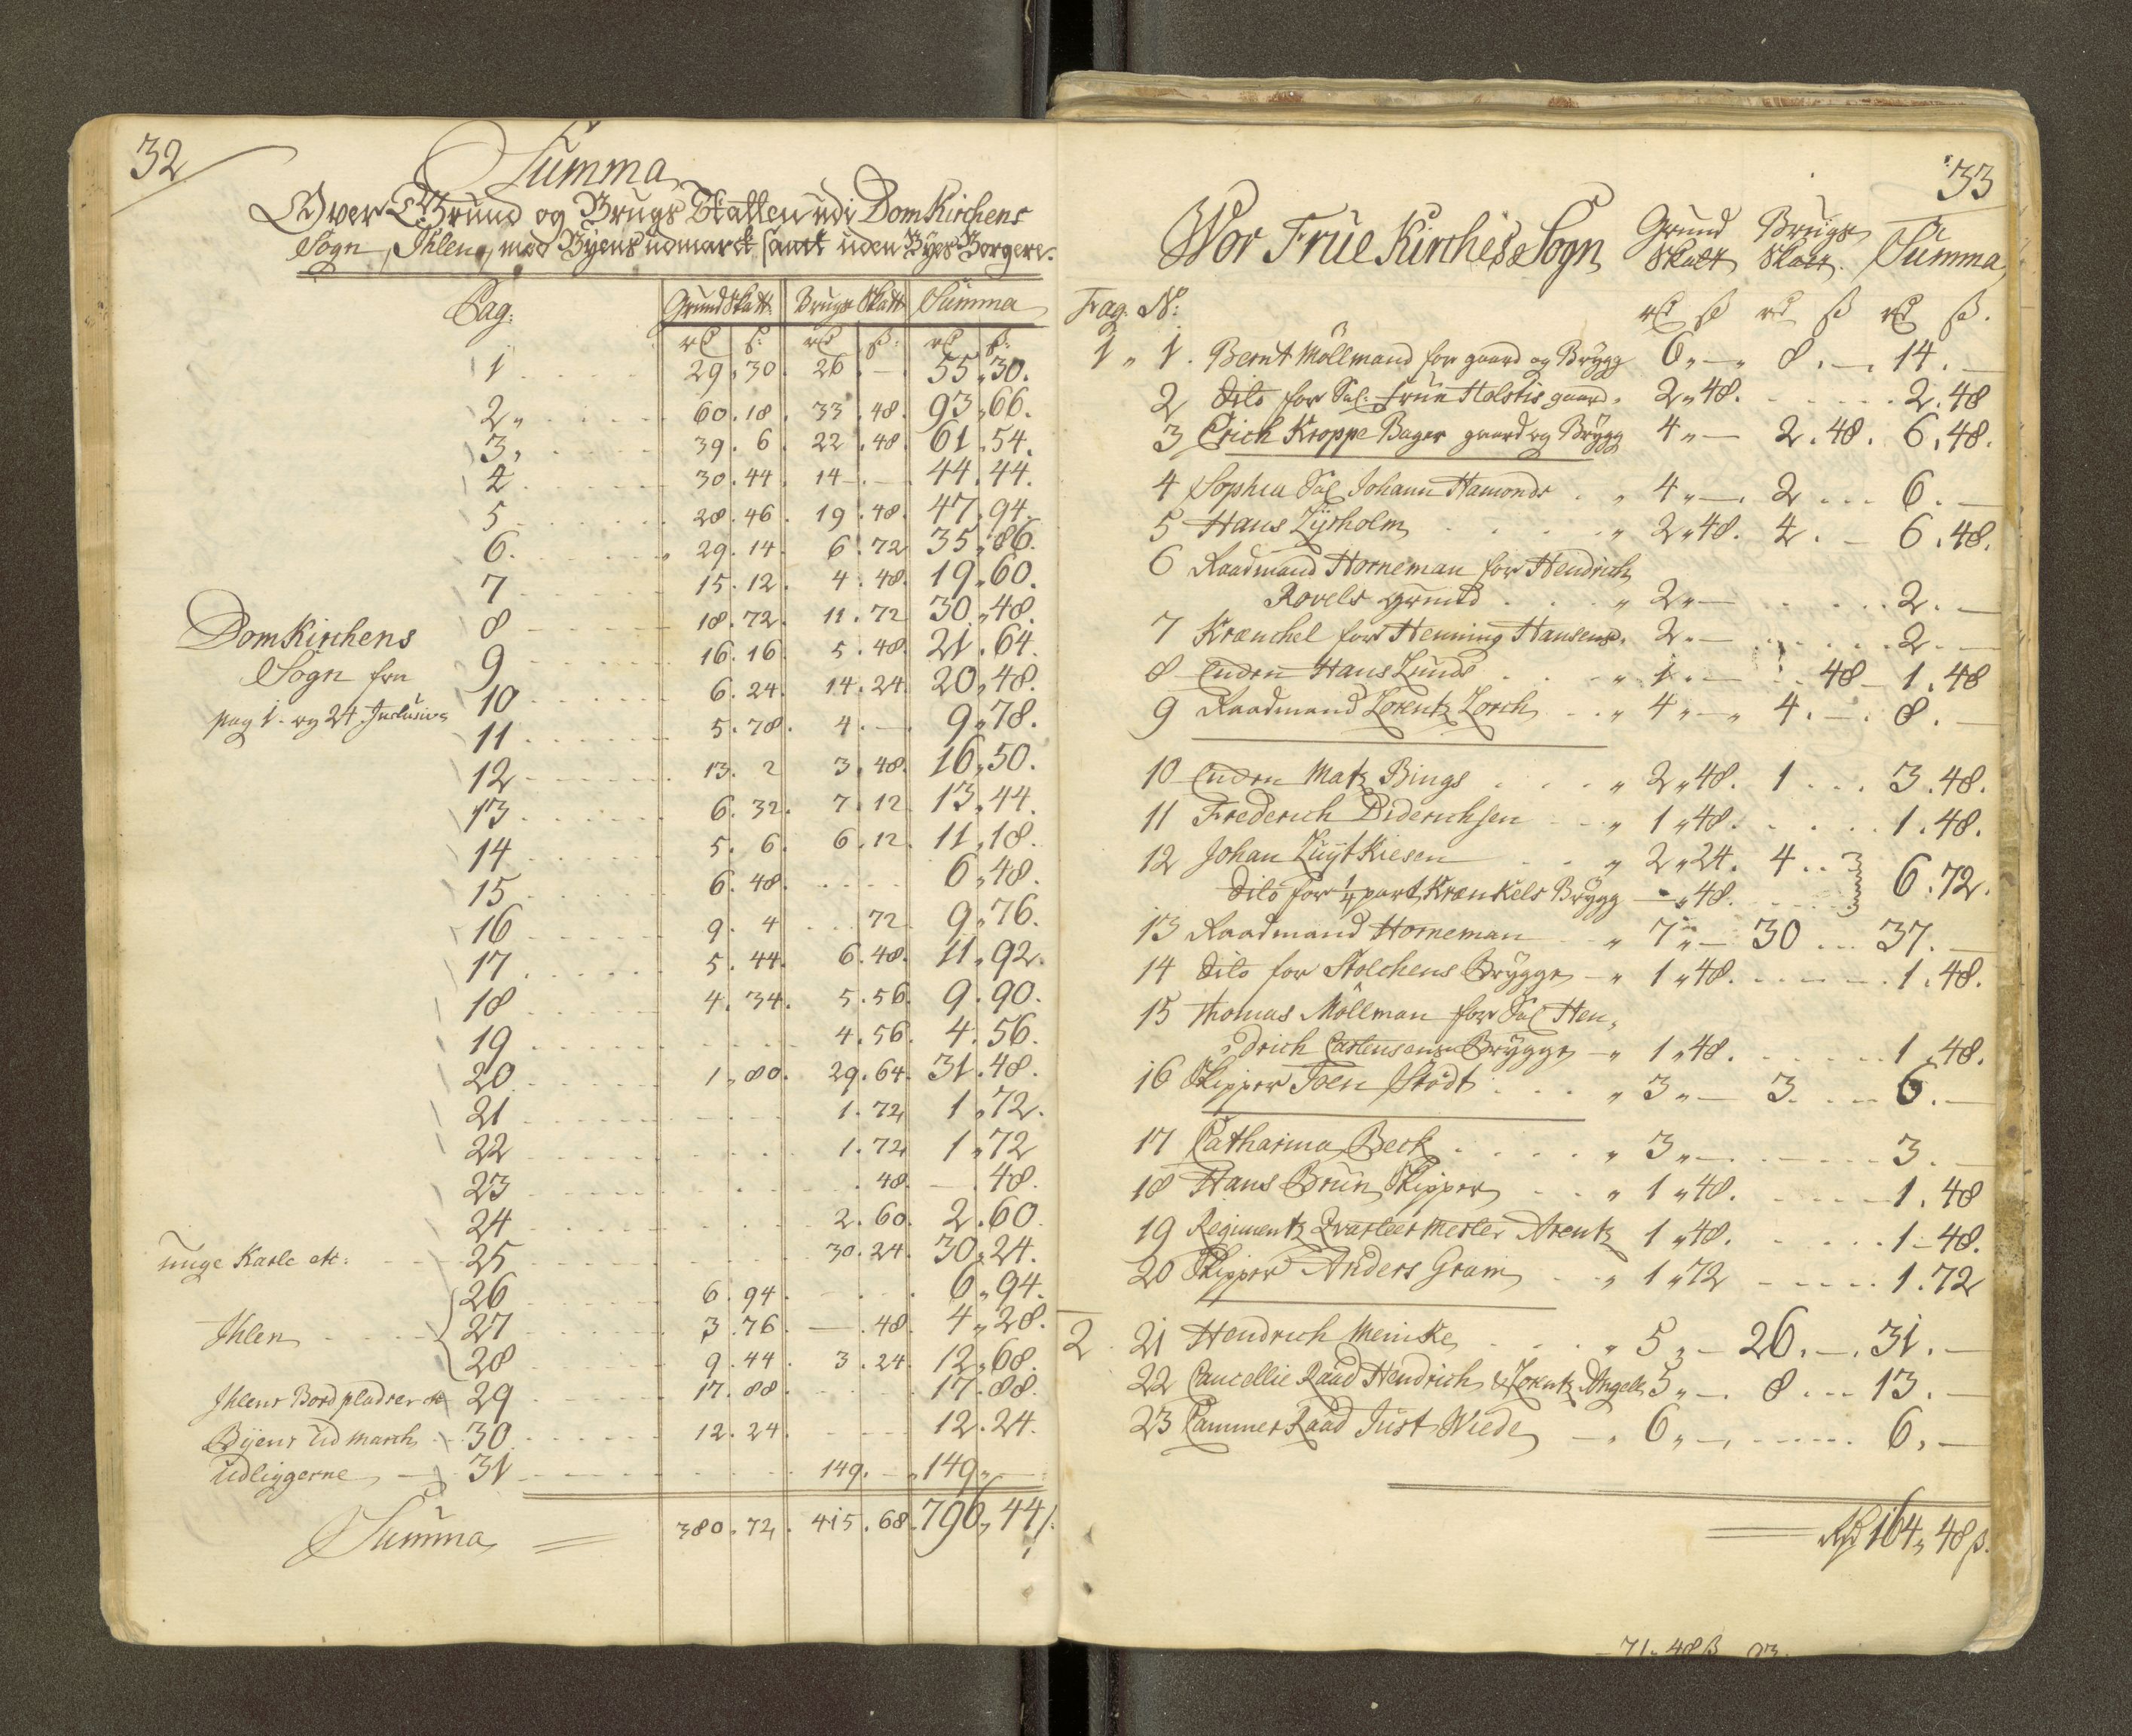 32
Summa
Over Grund og Brugs Skatten udi DomKirchens
Sogn, Ihlen, med Byens udmarck samt uden Byes Borgere.
Pag: GrundSkatt Brugs Skatt Summa
rd ß: rd ß: rd ß:
1 29.30. 26.—. 55,30.
2 60.18. 33.48. 93,66.
3 39.6. 22.48. 61,54.
4 30.44. 14—.— 44.44.
5 28.46. 19.48. 47,94.
6. 29.14. 6.72 35,86.
7 15.12. 4.48. 19,60.
8 18.72. 11.72 30,48.
DomKirchens
9 16.16 5.48. 21.64.
Sogn fra
10 6.24. 14.24. 20,48.
pag 1. og 24. Inclusive
11 5.78. 4.—. 9,78.
12 13.2 3.48. 16,50.
13 6.32. 7.12. 13,44.
14 5.6. 6.12. 11,18.
15 6.48. 6,48.
16 9.4 72. 9,76.
17 5.44. 6.48. 11,92.
18 4.34. 5.56. 9.90.
19 4.56. 4.56.
20 1,80. 29.64. 31.48.
21 1.72 1,72.
22 1.72 1,72
23 .48. —.48.
24 2.60. 2.60.
unge Karle etc: 25 30.24. 30,24.
26 6.94. 6,94.
Ihlen 27 3.76. —.48. 4,28.
28 9.44. 3.24. 12,68.
Ihlens Bord pladser etc 29 17.88. 17.88.
Byens Ud March 30 12.24. 12.24.
Udliggerne 31 149.— 149,—
Summa = 380.72. 415.68. 796,44/.
33
Wor Frue Kirches Sogn Grund Skatt Brugs Skatt. Summa
Frag. N: rd ß rd ß rd ß.
1 „ 1. Bernt Möllmand for gaard og Brygg 6„—„ 8.—. 14.—
2 Dito for Sal. Frue Holstis gaard„ 2„48. 2.48
3 Erich Kroppe Bager gaard og Brygg 4„— 2.48. 6.48.
4 Sophia Sal Johann Hamonds „ 4„—. 2 ... 6.—
5 Hans Lysholm „ 2„48. 4.— 6.48.
6 Raadmand Horneman for Hendrich
Rovels grund „ 2„— 2.—
7 Krænchel for Henning Hansens„ 2.— 2.—
8 Enden Hans Lunds „ 1.— 48— 1.48
9 Raadmand Lorentz Lorch „ 4„—„ 4.—. 8.—
10 Enden Matz Bings „ 2„48. 1 ... 3.48.
11 Frederich Diderichsen „ 1„48. 1.48.
12 Johan Luytkiesen „ 2„24. 4 ..
Dito for ¼ part Krænkels Brygg —„48. } 6.72.
13 Raadmand Horneman „ 7„— 30 ... 37.—
14 Dito for Stolchens Brygge „ 1„48. 1.48.
15 Thomas Möllman for Sal Hen„
drich Carstensens Brygge „ 1„48. 1.48.
16 Skipper Toen Stodt „ 3„— 3. 6.—
17 Catharina Beck „ 3„— 3.—
18 Hans Brun Skipper „ 1„48. 1.48
19 Regimentz Qvarteer Mester Arentz 1„48. 1—48.
20 Skipper Anders Gram „ 1„72 1.72
2. 21 Hendrich Meinke „ 5„— 26.—. 31.—
22 Cancellie Raad Hendrich & Lorentz Angell 5„—. 8 ... 13.—
23 Cammer Raad Just Wiede —„ 6„—„ 6.—
Rd 164„48ß.
71.48ß 93.